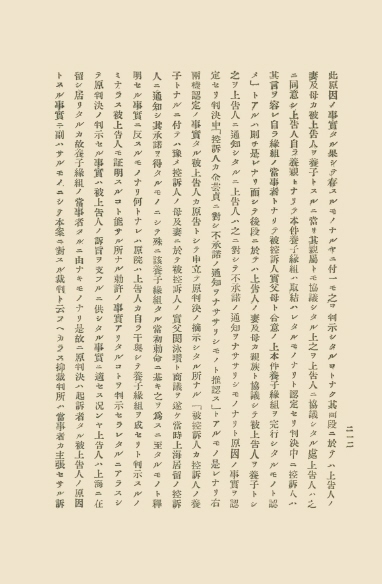 二一二
此原因ノ事實タル果シテ存スルモノナルヤニ付一モ之ヲ判示シタルコトナク其前段ニ於テハ上告人ノ
妻及母カ被上告人ヲ養子トスルニ當リ其親屬トモ協議シタル上之ヲ上告人ニ協議シタル處上告人ハ之
ニ同意シ上告人自ラ養親トナリテ本件養子縁組ハ取結ハレタルモノナリト認定セリ判決中ニ控訴人ハ
其言ヲ容レ自ラ縁組ノ當事者トナリテ被控訴人實父母ト合意ノ上本件養子縁組ヲ完行シタルモノト認
メ」トアルハ則チ是レナリ而シテ後段ニ於テハ上告人ノ妻及母カ親族ト協議シテ被上告人ヲ養子トシ
之ヲ上告人ニ通知シタルニ上告人ハ之ニ對シテ不承諾ノ通知ヲナササリシモノナリト原因ノ事實ヲ認
定セリ判決中「控訴人カ金芸貞ニ對シ不承諾ノ通知ヲナササリシモノト推認ス」トアルモノ是レナリ右
兩樣認定ノ事實タル被上告人カ原告トシテ申立テ原判決ノ摘示シタル所ナル「被控訴人カ控訴人ノ養
子トナルニ付テハ豫メ控訴人ノ母及妻ニ於テ被控訴人ノ實父閔泳瓚ト商議ヲ遂ケ當時上海居留ノ控訴
人ニ通知シ其承諾ヲ得タルモノニシテ殊ニ該養子縁組タル當初勅命ニ基キ之ヲ爲スニ至タルモノト釋
明セル事實ニ反スルモノナリ何トナレハ原院ハ上告人カ自ラ干與シテ養子縁組ヲ成セリト判示スルノ
ミナラス被上告人ニ證明スルコト能サル所ナル勅許ノ事實アリタルコトヲ判示セラレタルニアラスシ
テ原判決ノ判示セル事實ハ被上告人ノ訴旨ヲ支フルニ供シタル事實ニ適セス況ンヤ上告人ハ上海ニ在
留シ居リタルカ故養子縁組ノ當事者タルニ由ナキモノナリ是故ニ原判決ハ起訴者タル被上告人ノ原因
トスル事實ニ副ハサルモノニシテ本案ニ對スル裁判ト云フヘカラス抑裁判所ハ當事者カ主張セサル訴